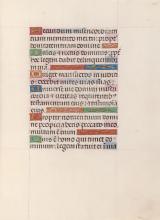 Secundum misericordiam
tuam memento mei tu: propter
bonitatem tuam domine
Dulcis et rectus dominus:
propter hoc legem dabit delinquentibus
in via
Diriget mansuetos in iudi
cio: docebit mites vias suas
Universe vie domini miseri
cordia et veritas requirentibus
testamentum eius et testimonia
eius
Propter nomen tuum domi
ne propiciaberis peccato meo:
multum est enim
Quis est homo qui timet do
minum: legem statuit ei in via